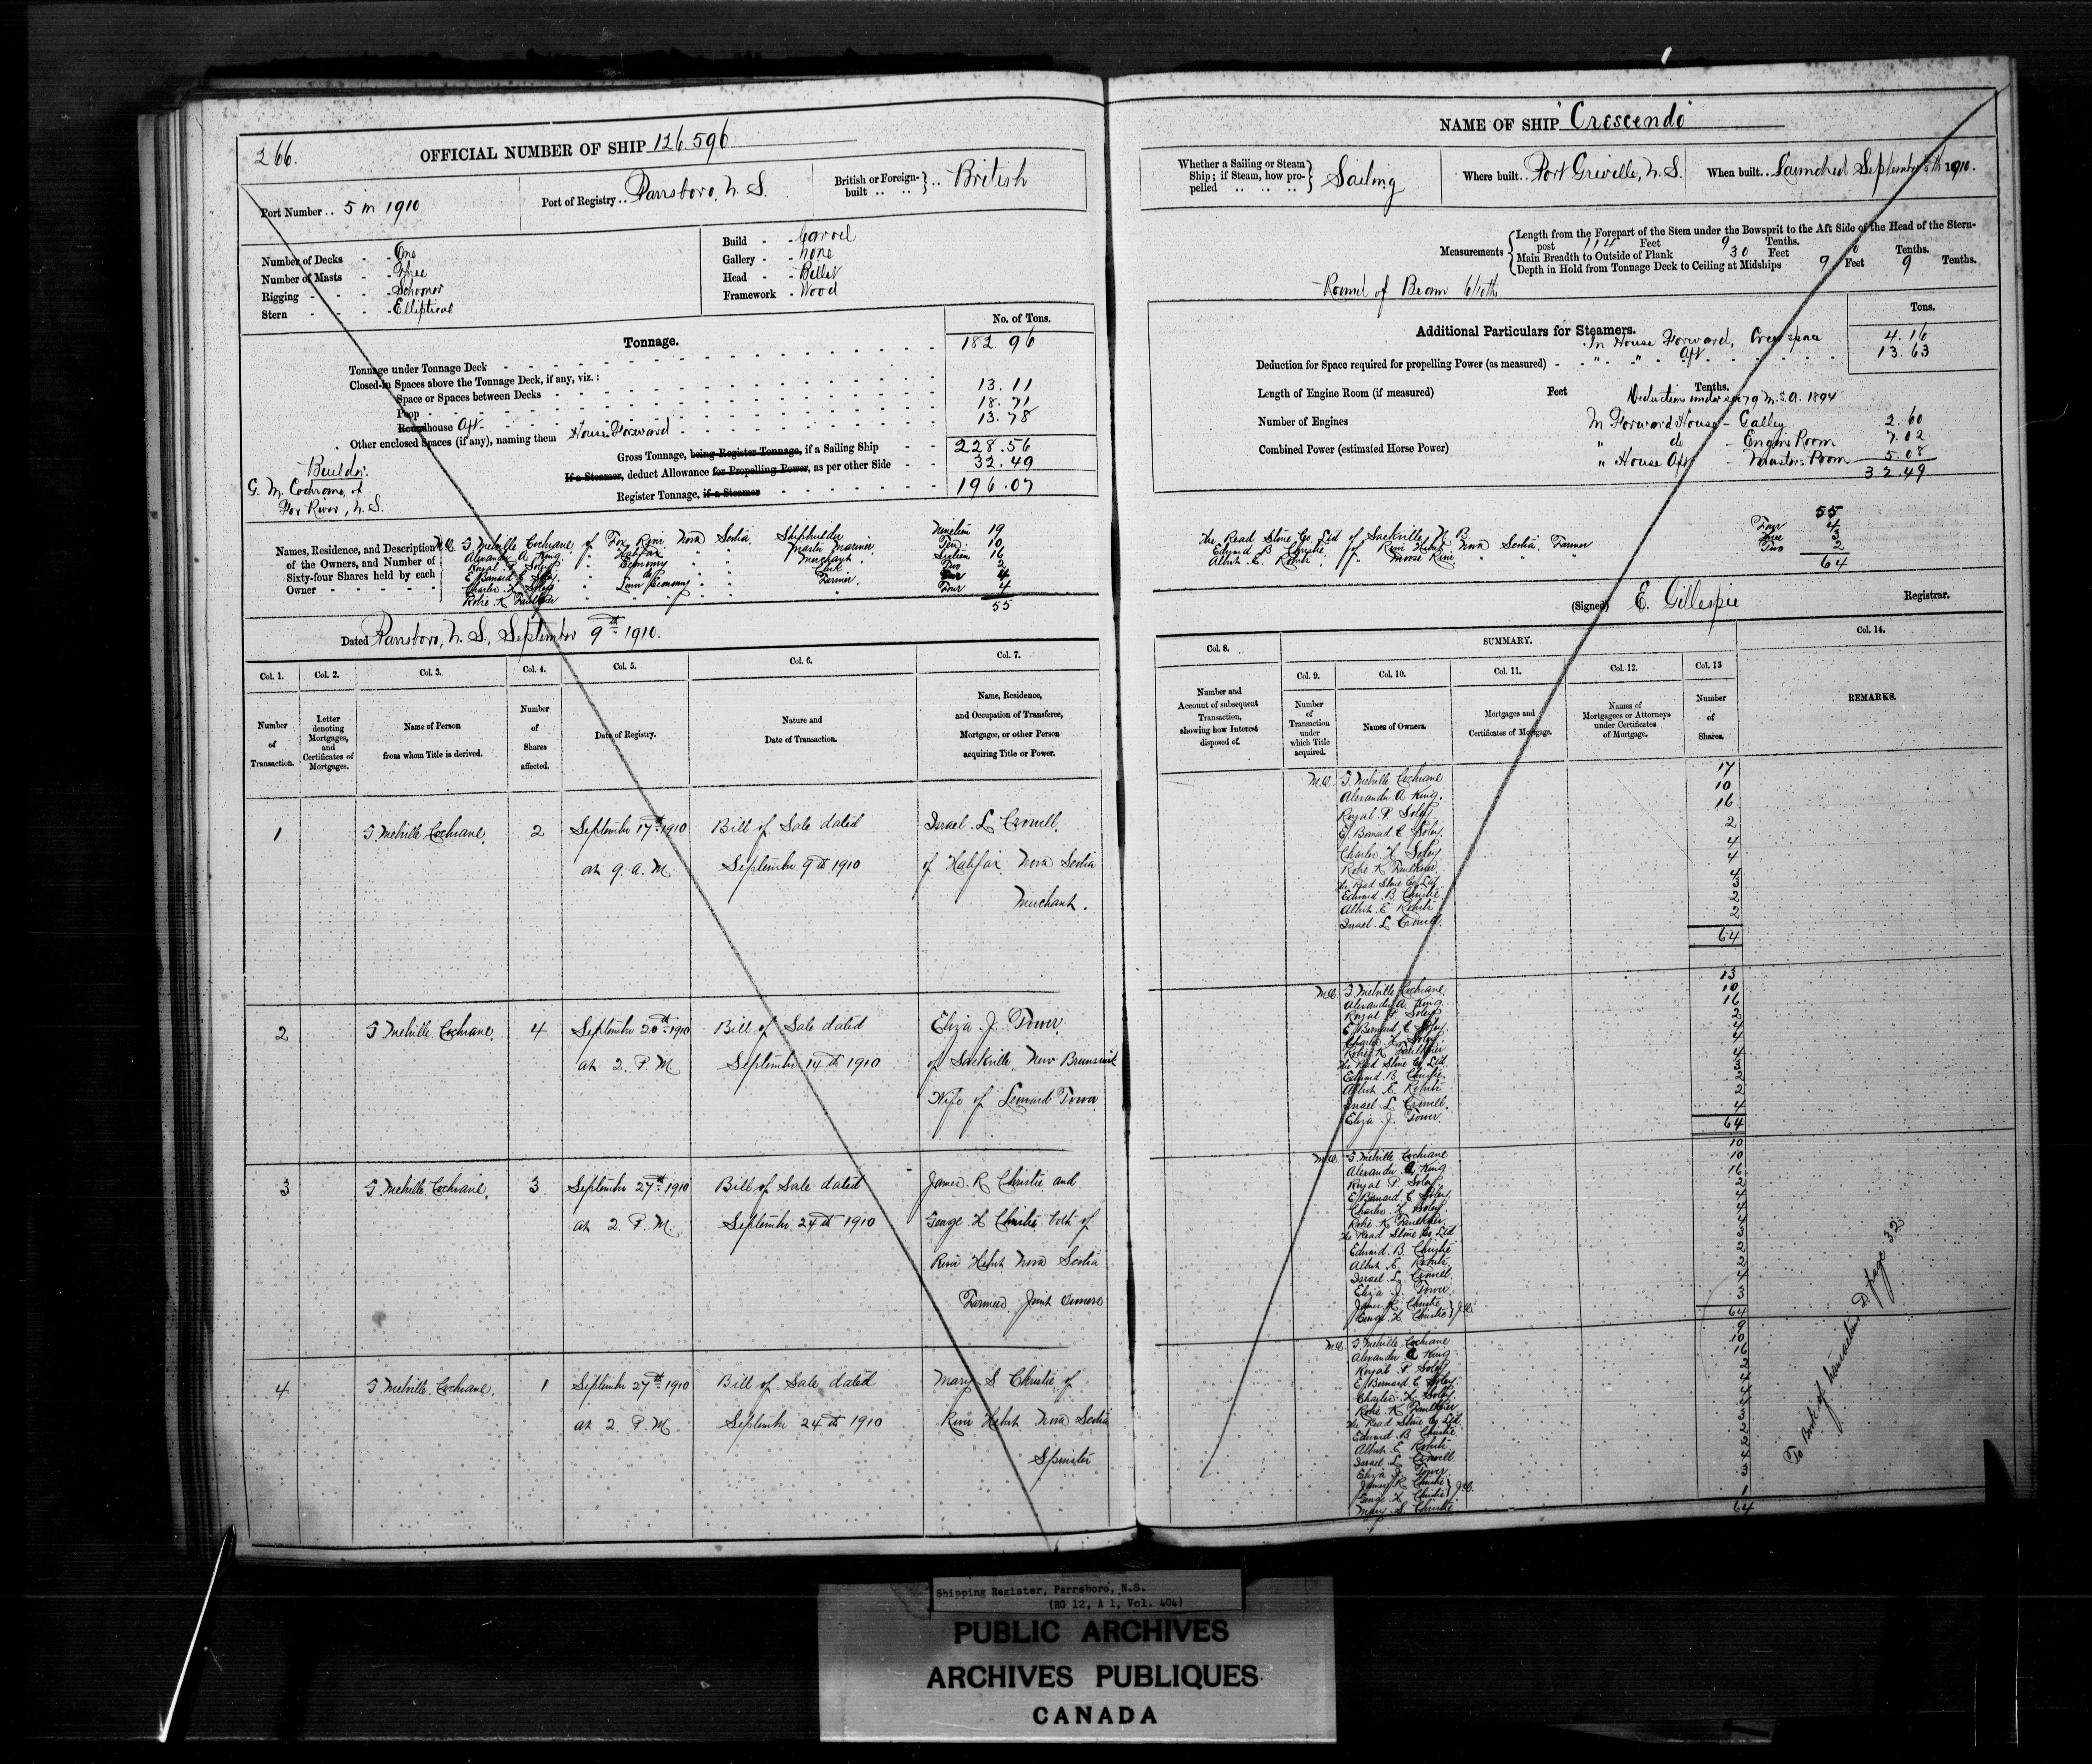 266.
OFFICIAL NUMBER OF SHIP 126.596
Port Number .. 5 in 1910
Port of Registry .. Parrsboro, N. S.
British or Foreign-built .. .. British
Number of Decks - - One
Number of Masts - - Three
Rigging - - - - Schooner
Stern - - - - Elliptical
Build - - Carvel
Gallery - - None
Head - - Billet
Framework - Wood
Tonnage.
No. of Tons.
Tonnage under Tonnage Deck 182.96
Closed-in Spaces above the Tonnage Deck, if any, viz.:
Space or Spaces between Decks
Poop 13.11
Roundhouse Aft 18.71
Other enclosed Spaces (if any), naming them House Forward 13.78
Gross Tonnage, being Register Tonnage, if a Sailing Ship 228.56
If a Steamer, deduct Allowance for Propelling Power, as per other Side 32.49
Register Tonnage, if a Steamer 196.07
Builder.
G. M. Cochrane, of
Fox River, N. S.
Names, Residence, and Description of the Owners, and Number of Sixty-four Shares held by each Owner
M.O. G Melville Cochrane of Fox River Nova Scotia Shipbuilder Nineteen 19
Alexander A. King Halifax Master Mariner Ten 10
Royal P. Soley Economy Merchant Sixteen 16
E Bernard C Soley do Clerk Two 2
Charles H Soley Lower Economy Farmer Four 4
Robie K Faulkner Four 4
55
Dated Parrsboro, N. S., September 9th 1910.
Col. 1. Col. 2. Col. 3. Col. 4. Col. 5. Col. 6. Col. 7.
Number of Transaction.
Letter denoting Mortgages, and Certificates of Mortgages.
Name of Person from whom Title is derived.
Number of Shares affected.
Date of Registry.
Nature and Date of Transaction.
Name, Residence, and Occupation of Transferee, Mortgagee, or other Person acquiring Title or Power.
1 G Melville Cochrane, 2 September 17th 1910 Bill of Sale dated Israel L Crowell,
at 9. A. M September 9th 1910 of Halifax Nova Scotia
Merchant.
2 G Melville Cochrane, 4 September 20th 1910 Bill of Sale dated Eliza J. Tower,
at 2. P. M September 14th 1910 of Sackville, New Brunswick
Wife of Leonard Tower
3 G Melville Cochrane, 3 September 27th 1910 Bill of Sale dated James R Christie and
at 2. P. M. September 24th 1910 George H Christie both of
River Hebert Nova Scotia
Farmers, Joint Owners
4 G Melville Cochrane, 1 September 27th 1910 Bill of Sale dated Mary S Christie of
at 2 P. M. September 24th 1910 River Hebert Nova Scotia
Spinster
NAME OF SHIP "Crescendo"
Whether a Sailing or Steam Ship; if Steam, how propelled .. .. .. Sailing
Where built .. Port Greville, N. S.
When built .. Launched September 5th 1910.
Measurements
Length from the Forepart of the Stem under the Bowsprit to the Aft Side of the Head of the Stern-
post 114 Feet 9 Tenths.
Main Breadth to Outside of Plank 30 Feet 0 Tenths.
Depth in Hold from Tonnage Deck to Ceiling at Midships 9 Feet 9 Tenths.
Round of Beam 6/10ths
Additional Particulars for Steamers.
Tons.
In House Forward, Crew space 4.16
Deduction for Space required for propelling Power (as measured) " " Aft 13.63
Length of Engine Room (if measured) Feet Tenths.
Deductions under sec 79 M.S.A. 1894
Number of Engines
In Forward House - Galley 2.60
" do - Engine Room 7.02
Combined Power (estimated Horse Power)
" House Aft - Masters Room 5.08
32.49
55
The Read Stone Co. Ltd of Sackville, N. B. Four 4
Edward B Christie, of River Hebert Nova Scotia, Farmer 3
Albert E. of Moose River " " " Two 2
64
(Signed) E. Gillespie Registrar.
Col. 8. SUMMARY. Col. 14.
Col. 9. Col. 10. Col. 11. Col. 12. Col. 13
Number and Account of subsequent Transaction, showing how Interest disposed of.
Number of Transaction under which Title acquired.
Names of Owners.
Mortgages and Certificates of Mortgage.
Names of Mortgagees or Attorneys under Certificates of Mortgage.
Number of Shares.
REMARKS.
M.O. G Melville Cochrane 17
Alexander A King. 10
Royal P Soley 16
E. Bernard C Soley. 2
Charles H Soley 4
Robie K Faulkner 4
The Read Stone Co Ltd 4
Edward B Christie 3
Albert E 2
Israel L Crowell. 2
64
M.O. G Melville Cochrane 13
Alexander A. King 10
Royal P Soley 16
E Bernard C Soley 2
Charles H Soley 4
Robie K Faulkner 4
The Read Stone Co Ltd 4
Edward B. Christie 3
Albert E. 2
Israel L Crowell. 2
Eliza J. Tower 4
64
M.O. G Melville Cochrane 10
Alexander A King 10
Royal P Soley 16
E Bernard C Soley 2
Charles H Soley 4
Robie K Faulkner 4
The Read Stone Co Ltd 4
Edward B. Christie 3
Albert E. 2
Israel L. Crowell 2
Eliza J Tower 4
James R. Christie
George H Christie } J.O. 3
64
M.O. G Melville Cochrane 9
Alexander A King 10
Royal P Soley 16
E Bernard C Soley 2
Charles H Soley 4
Robie K Faulkner 4
The Read Stone Co Ltd 4
Edward B Christie 3
Albert E 2
Israel L Crowell 2
Eliza J Tower 4
James R Christie
George H Christie } J.O. 3
Mary S. Christie 1
64
To Book of transactions D. page 32
Shipping Register, Parrsboro, N.S.
(RG 12, A 1, Vol. 404)
PUBLIC ARCHIVES
ARCHIVES PUBLIQUES
CANADA